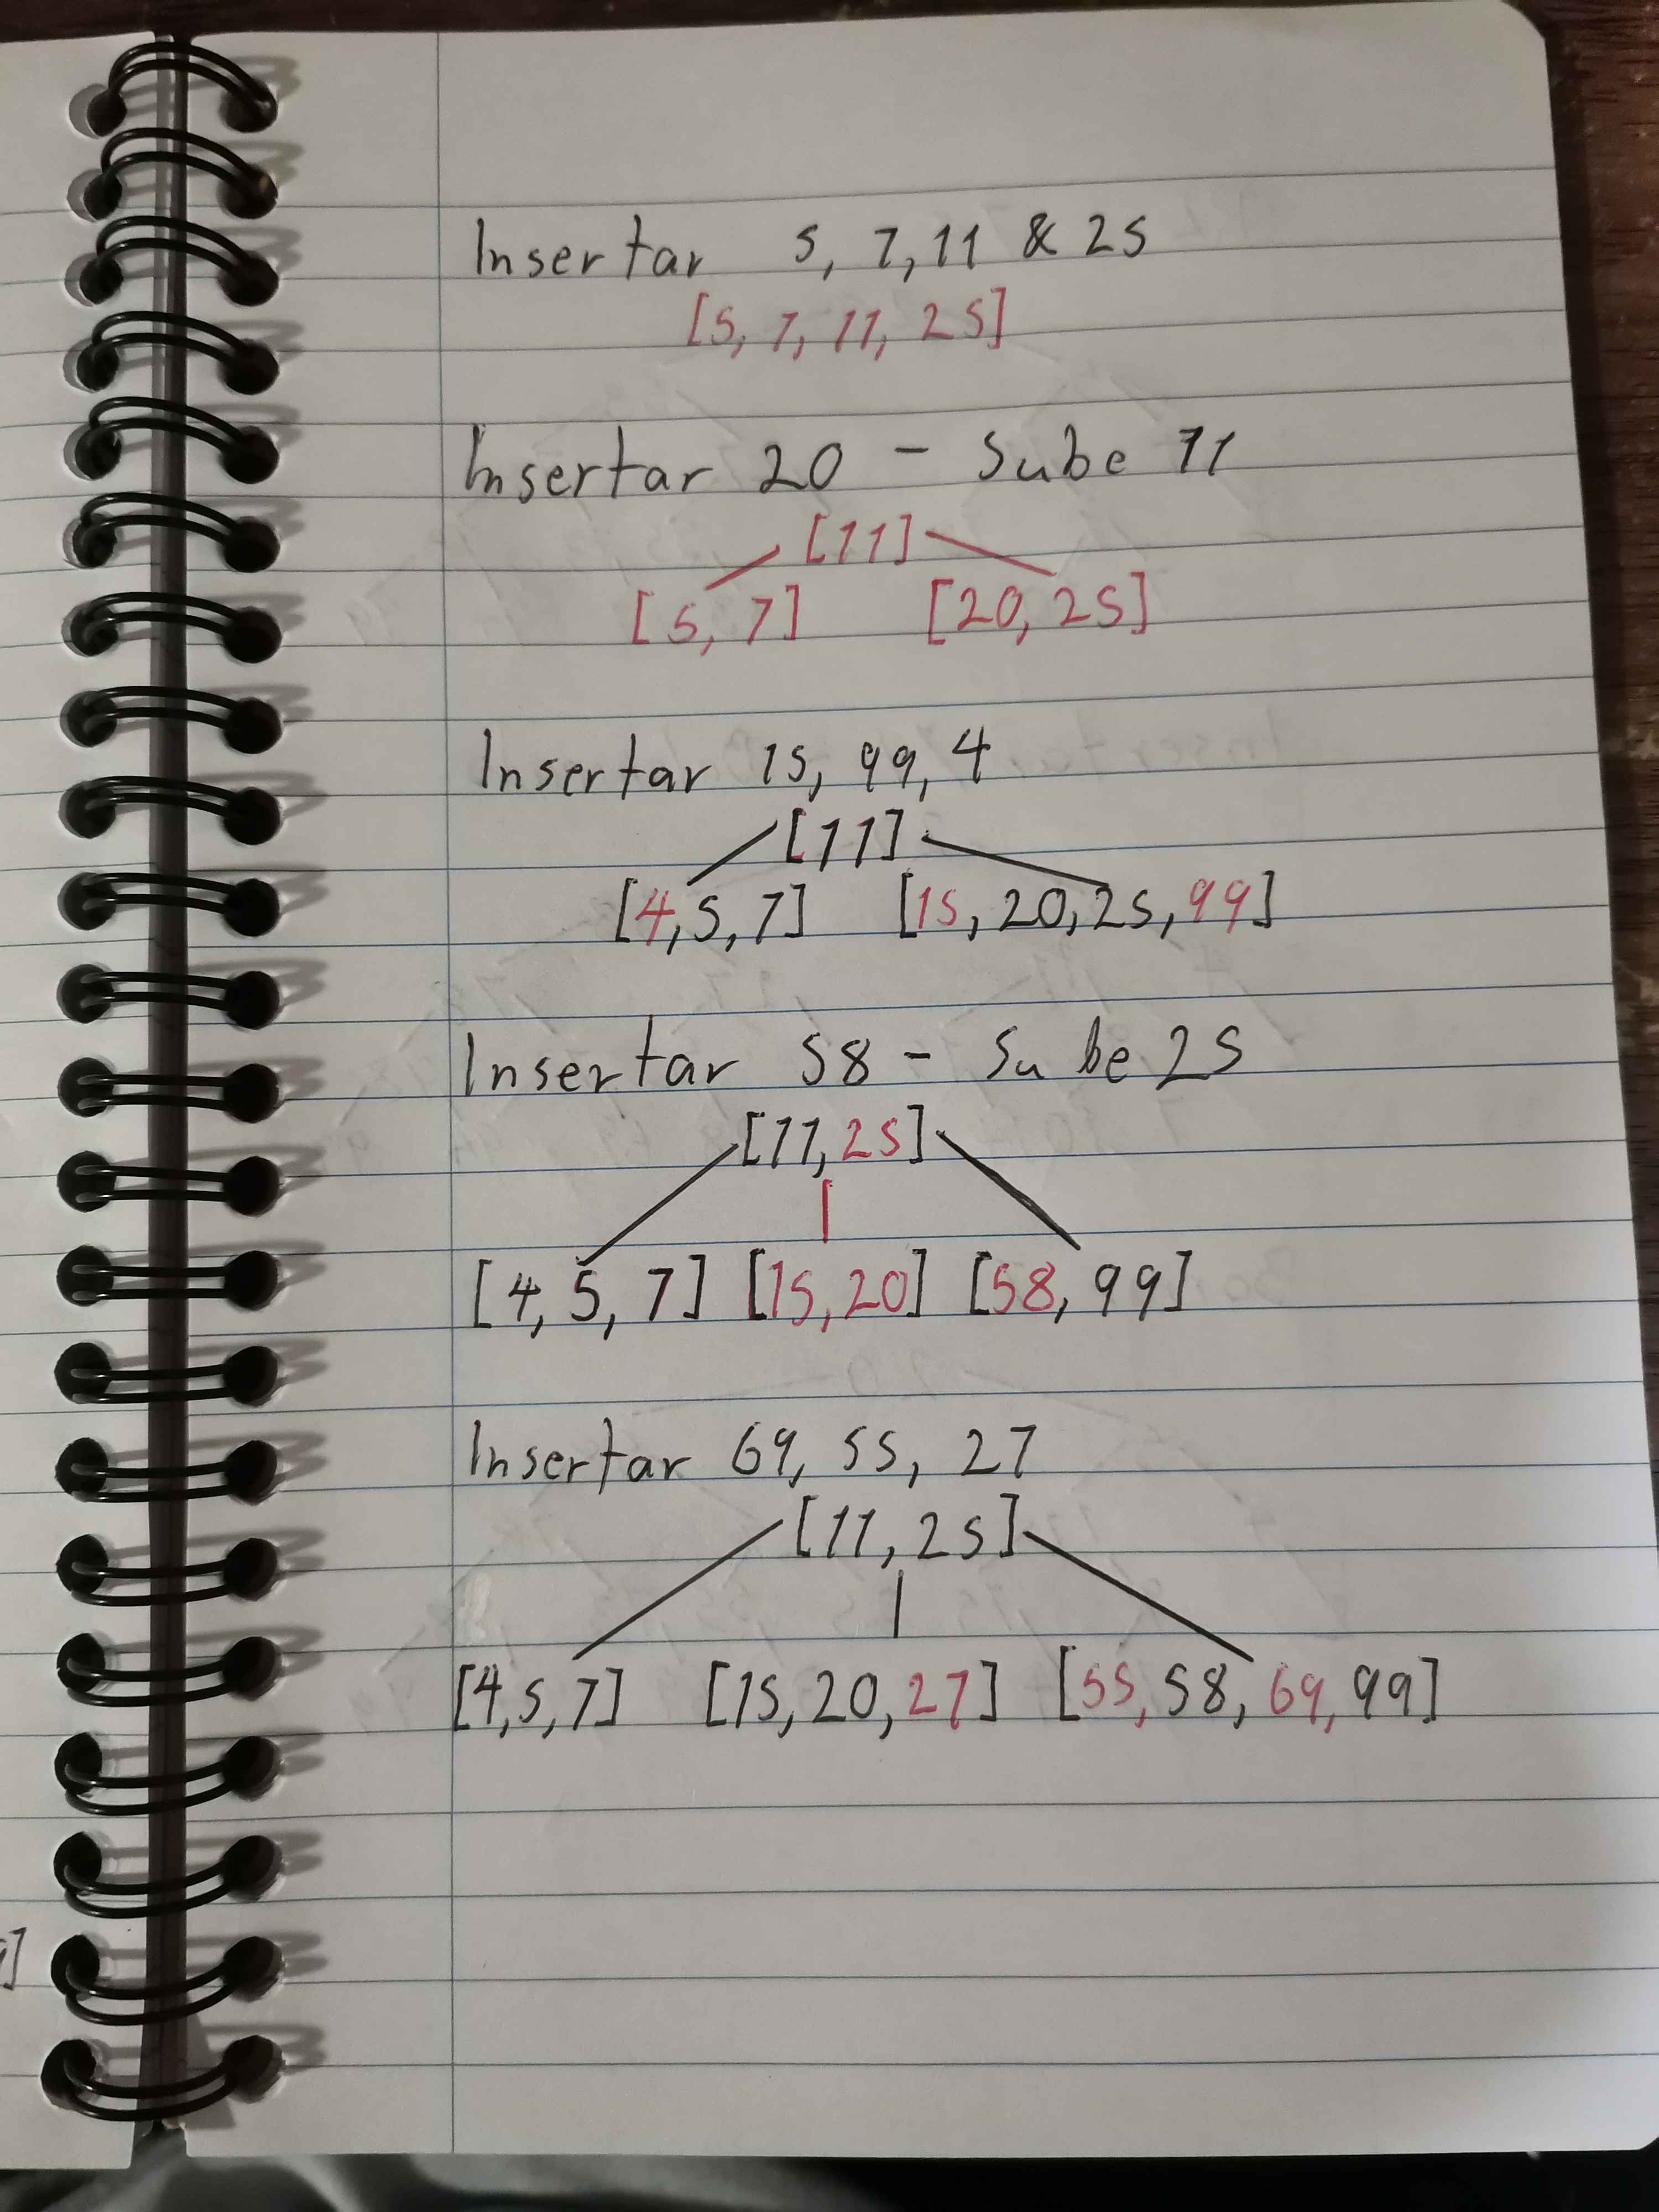 Insertar 5, 7, 11 & 25
[5, 7, 11, 25]
Insertar 20 - Sube 11
[11]
[5, 7] [20, 25]
Insertar 15, 99, 4
[11]
[4, 5, 7] [15, 20, 25, 99]
Insertar 58 - Sube 25
[11, 25]
[4, 5, 7] [15, 20] [58, 99]
Insertar 69, 55, 27
[11, 25]
[4, 5, 7] [15, 20, 27] [55, 58, 69, 99]